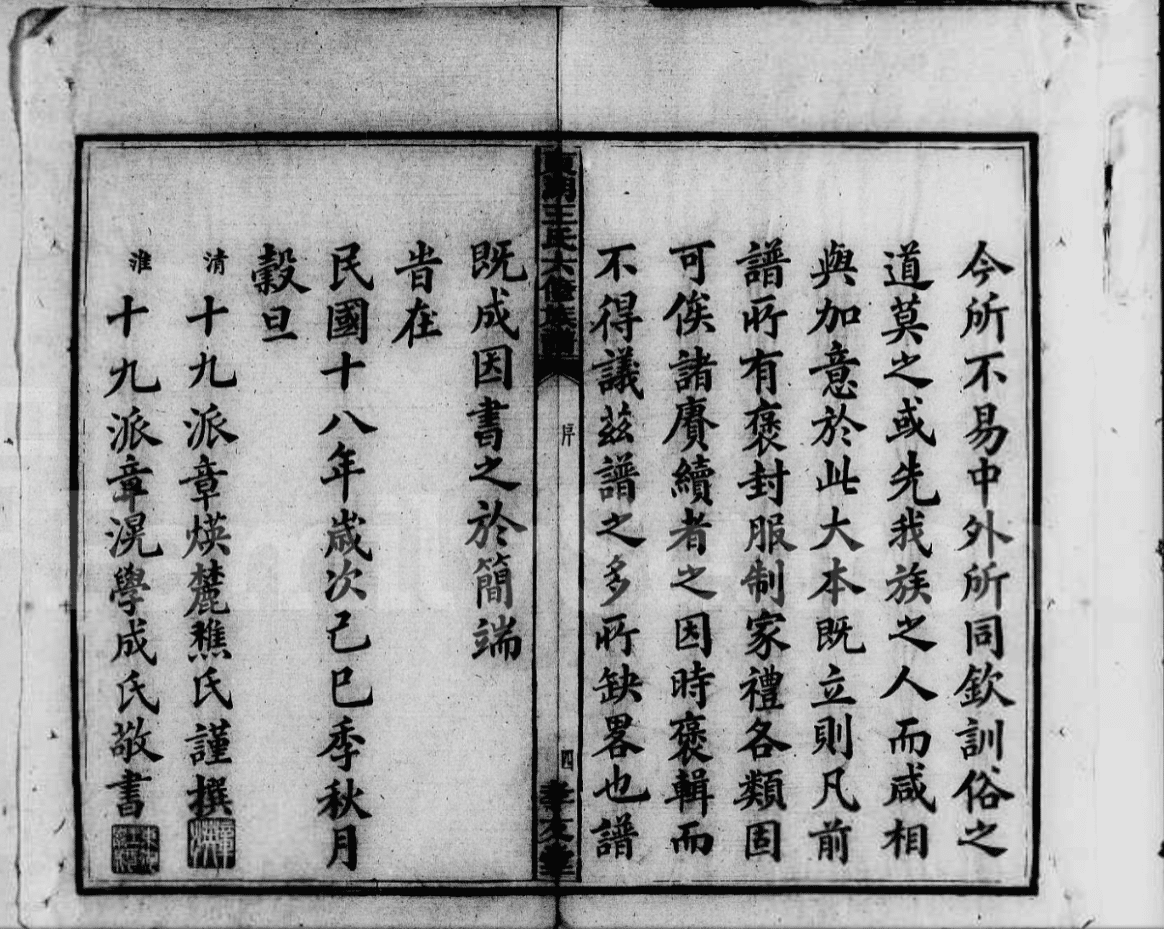 今所不易中外所同欽訓俗之
道莫之或先我族之人而咸相
與加意於此大本既立則凡前
譜所有褒封服制家禮各類固
可俟諸賡續者之因時褒輯而
不得議茲譜之多所缺畧也譜
東湖王氏六修族譜
序
四
孝友堂
既成因書之於簡端
旹在
民國十八年歲次己巳季秋月
穀旦
清十九派章煐麓樵氏謹撰
淮十九派章滉學成氏敬書